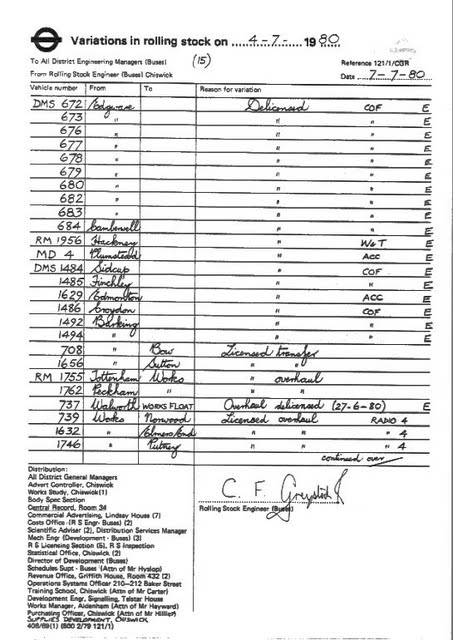 Variations in rolling stock on 4-7- 1980
To All District Engineering Managers (Buses) (15) Reference 121/1/CGR
From Rolling Stock Engineer (Buses) Chiswick Date 7-7-80
Vehicle number From To Reason for variation
DMS 672 Edgware Delicensed COF E
673 " " " E
676 " " " E
677 " " " E
678 " " " E
679 " " " E
680 " " " E
682 " " " E
683 " " " E
684 Camberwell " " E
RM 1956 Hackney " W&T E
MD 4 Plumstead " Acc E
DMS 1484 Sidcup " COF E
1485 Finchley " " E
1629 Edmonton " ACC E
1486 Croydon " COF E
1492 Barking " " E
1494 " " " E
708 " Bow Licensed transfer
1656 " Sutton " "
RM 1755 Tottenham Works " overhaul
1762 Peckham " " "
737 Walworth WORKS FLOAT Overhaul delicensed (27-6-80) E
739 Works Norwood Licensed overhaul RADIO 4
1632 " Elmers End " " " 4
1746 " Putney " " " 4
continued over
Distribution:
All District General Managers
Advert Controller, Chiswick
Works Study, Chiswick (1)
Body Spec Section
Central Record, Room 34
Commercial Advertising, Lindsay House (7)
Costs Office (R S Engr- Buses) (2)
Scientific Adviser (2), Distribution Services Manager
Mech Engr (Development - Buses) (3)
R S Licensing Section (5), R S Inspection
Statistical Office, Chiswick (2)
Director of Development (Buses)
Schedules Supt - Buses (Attn of Mr Hyslop)
Revenue Office, Griffith House, Room 432 (2)
Operations Systems Officer 210-212 Baker Street
Training School, Chiswick (Attn of Mr Carter)
Development Engr, Signalling, Telstar House
Works Manager, Aldenham (Attn of Mr Hayward)
Purchasing Officer, Chiswick (Attn of Mr Hillier)
SUPPLIES DEVELOPMENT, CHISWICK.
408/69(1) (800 2/79 121/1)
C. F.
Rolling Stock Engineer (Buses)